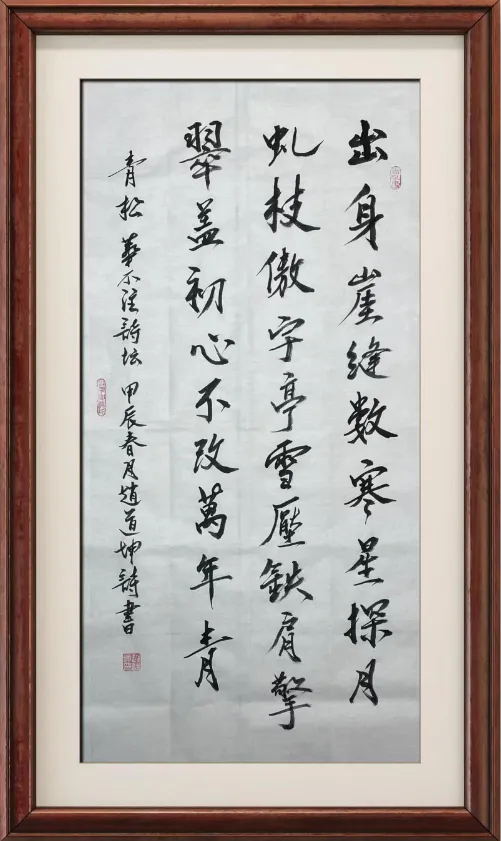 出身崖缝数寒星探月
虬枝傲宇亭雪壓鉄肩擎
翠盖初心不改萬年青
青松 華不注詩坛 甲辰春月趙道坤詩書